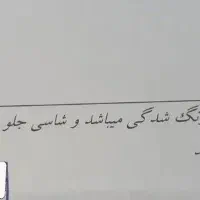 رنگ شدگی میباشد و شاسی جلو